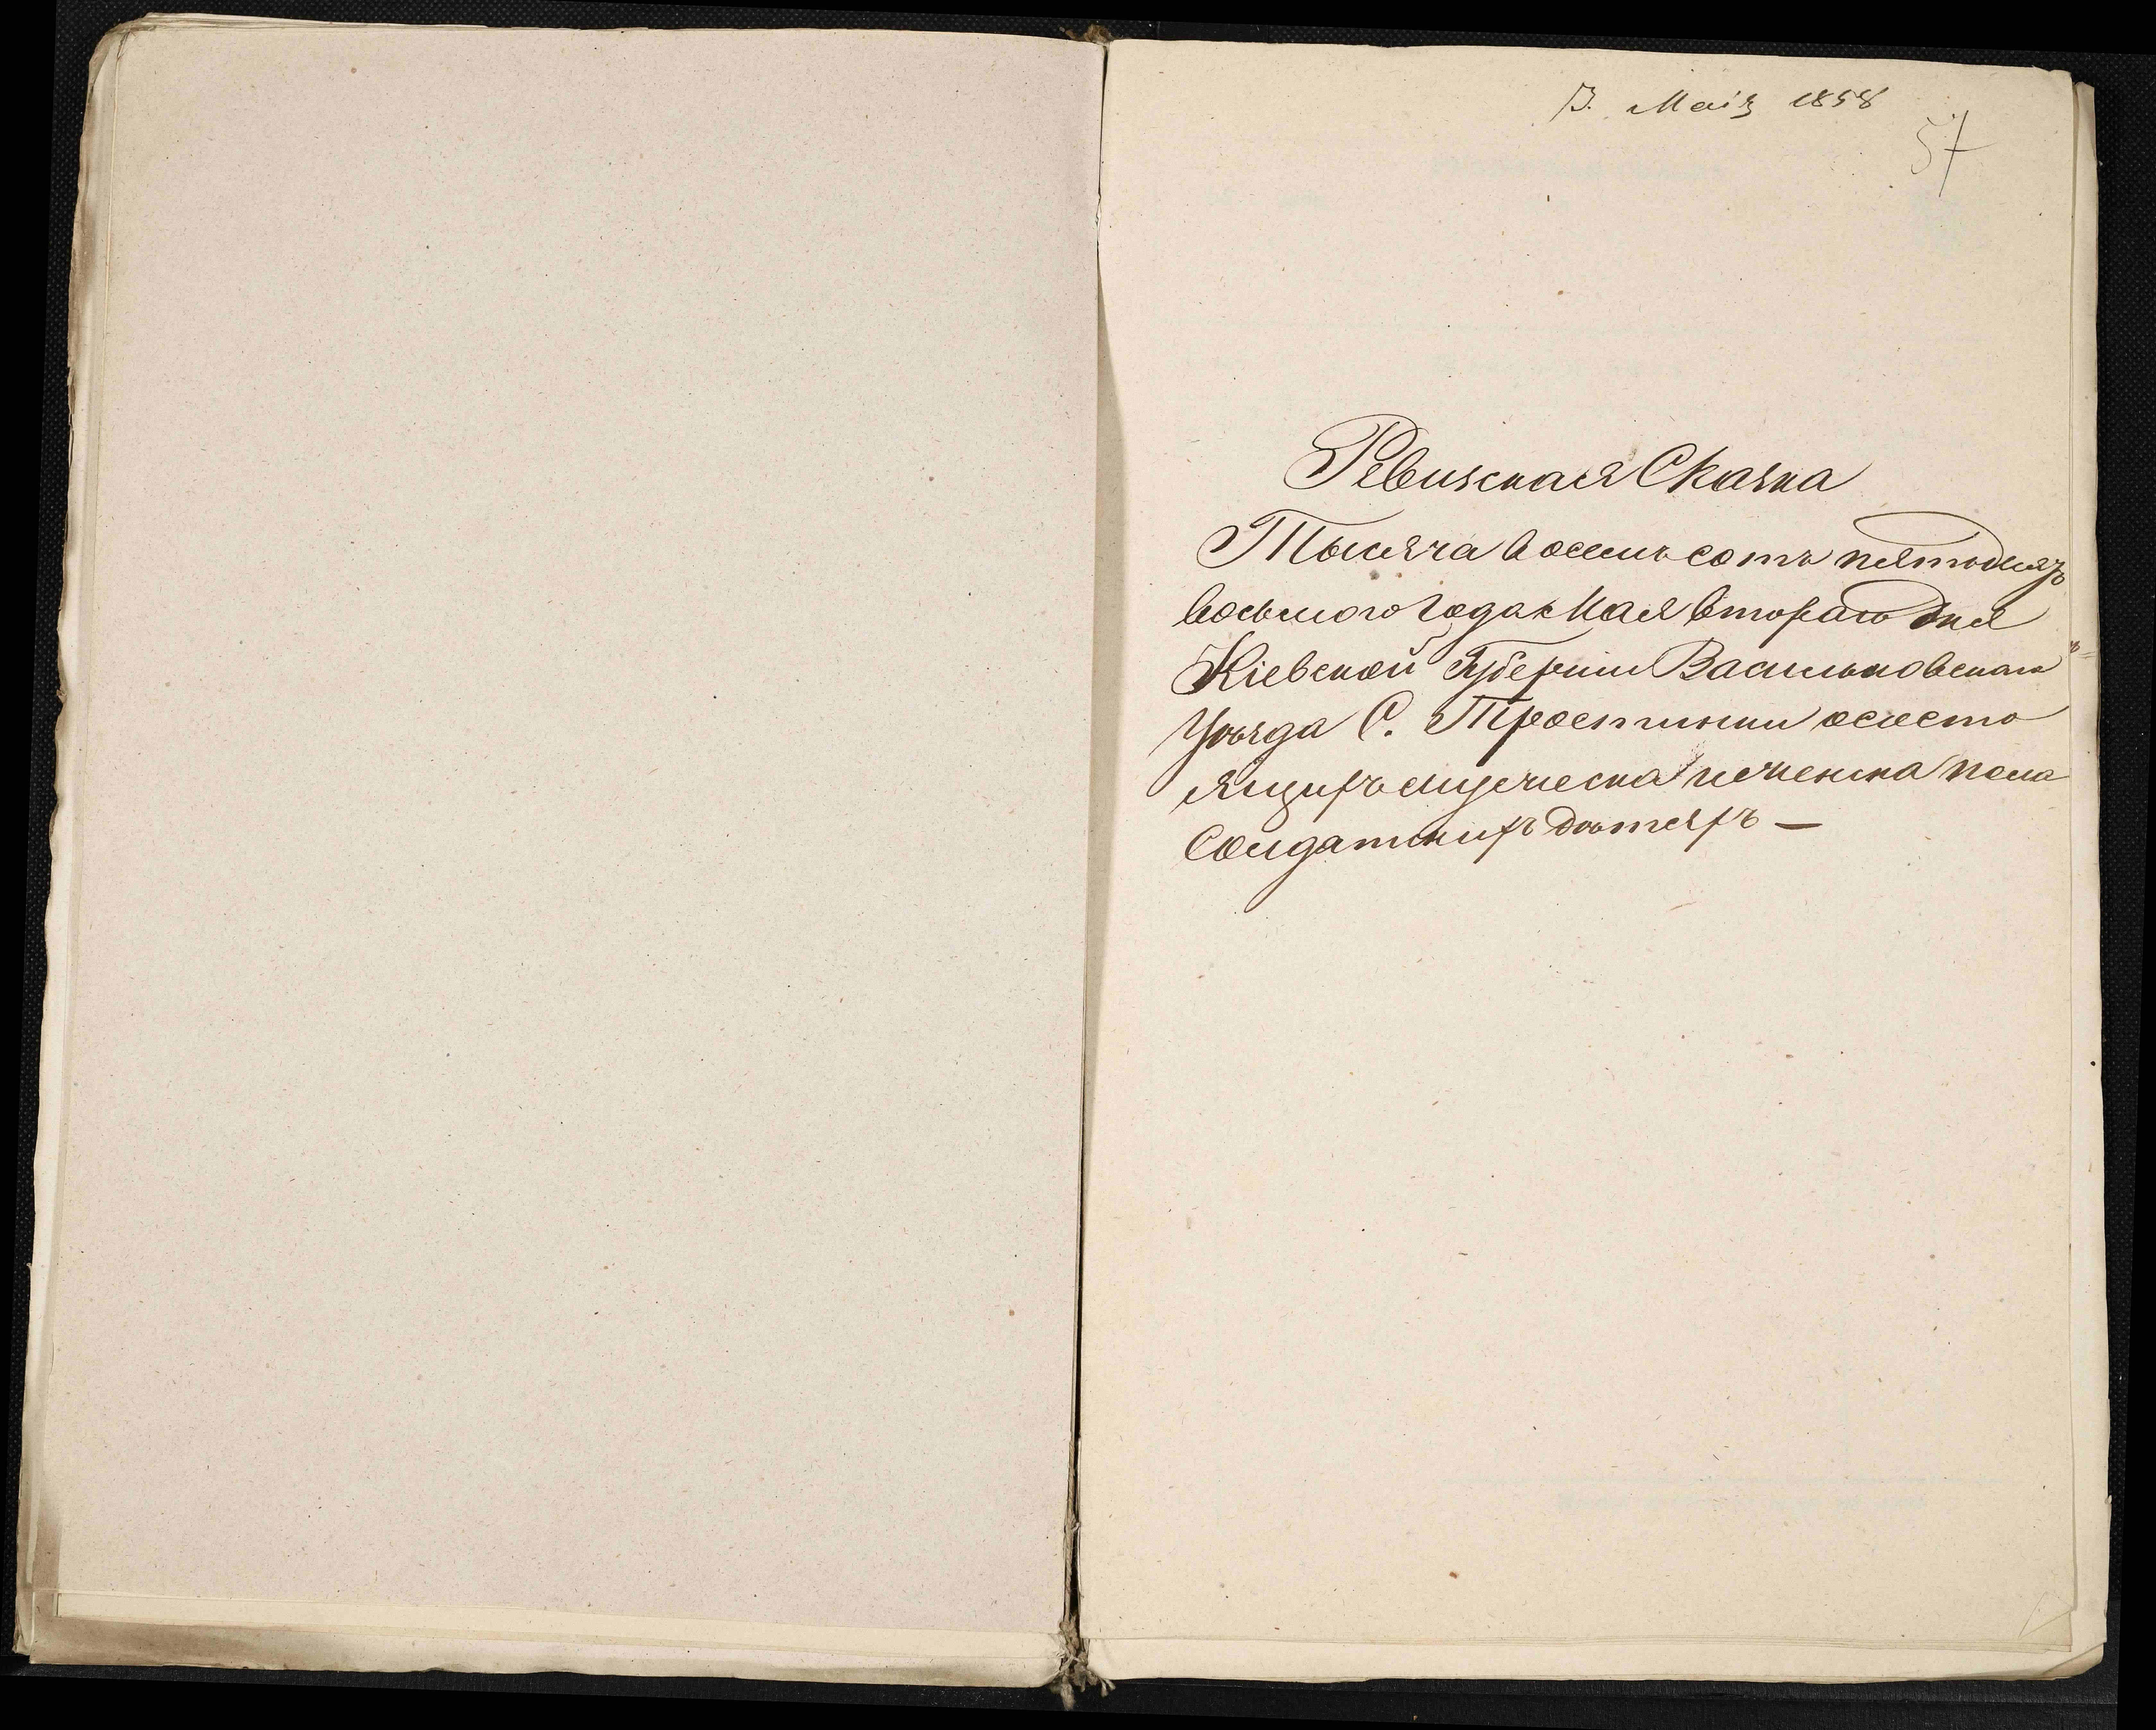 3. Маія 1858
57
Ревизская Сказка
Тысяча восемь сотъ пятьдесятъ
восьмого года Мая втораго дня
Кіевской Губерніи Васильковскаго
Уѣзда С. Тростинки о состо
ящихъ мужеска и женска пола
Солдатскихъ дѣтяхъ —